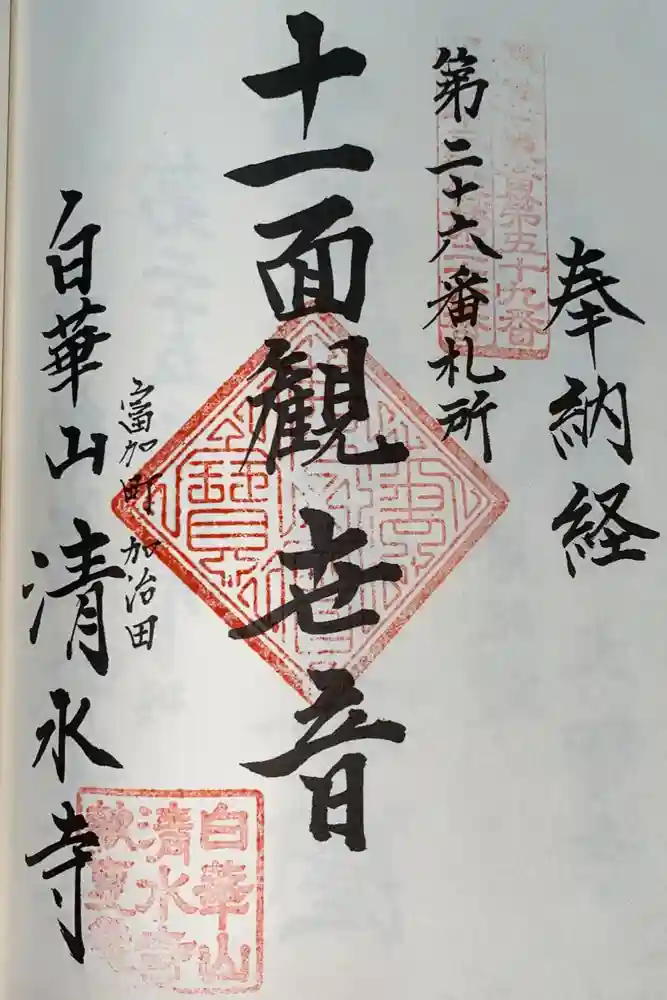 奉納経
第二十六番札所
第五十九番
十一面観世音
富加町 加治田
白華山 清水寺
白華山
清水寺